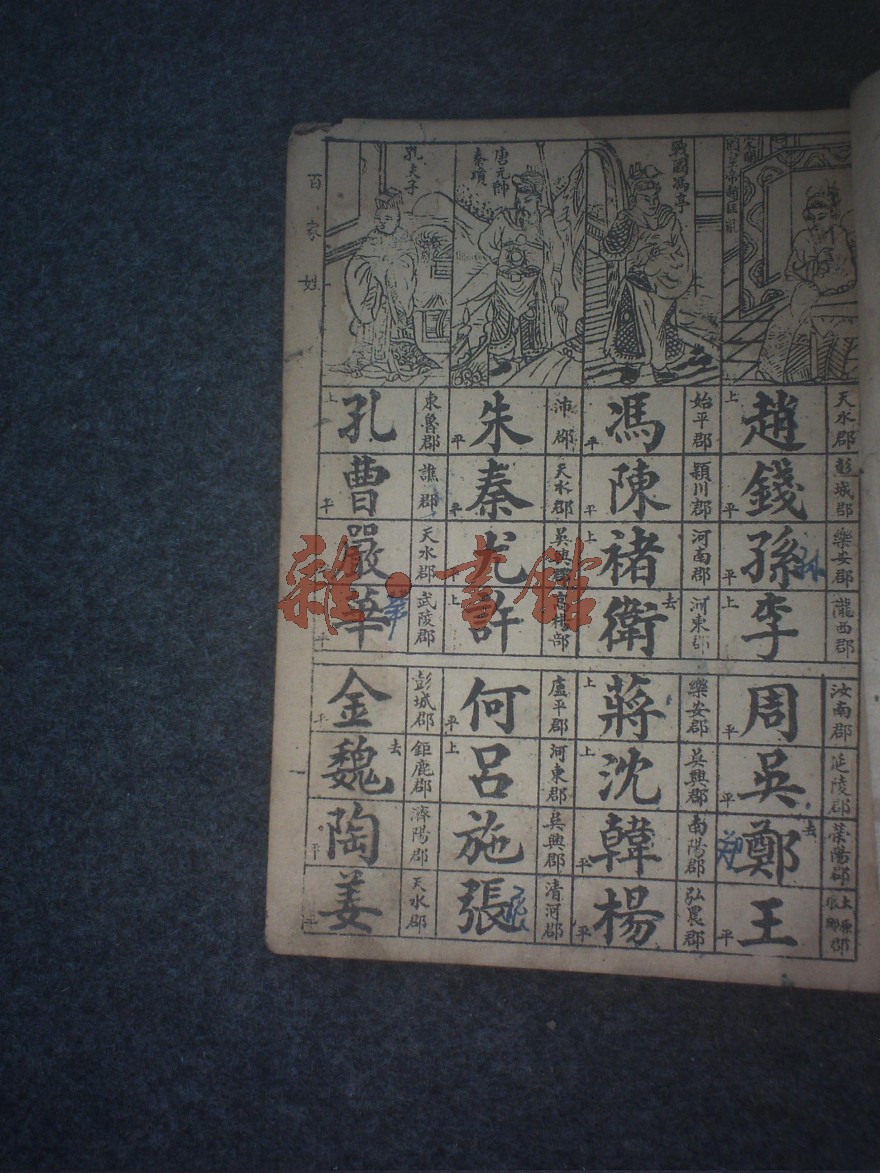 百家姓
戰國馮亭
唐元帥
秦瓊
孔夫子
天水郡 趙 上
彭城郡 錢 平
樂安郡 孫 平
隴西郡 李 上
始平郡 馮 平
潁川郡 陳 平
河南郡 褚 上
河東郡 衛 去
沛郡 朱 平
天水郡 秦 平
吳興郡 尤 平
許 上
東魯郡 孔 上
譙郡 曹 平
天水郡 嚴
武陵郡 華 平
汝南郡 周 平
延陵郡 吳 平
滎陽郡 鄭 去
王 平
樂安郡 蔣 上
吳興郡 沈 上
南陽郡 韓 平
弘農郡 楊 平
盧平郡 何 平
河東郡 呂 上
吳興郡 施
清河郡 張
彭城郡 金 平
鉅鹿郡 魏 去
濟陽郡 陶 平
天水郡 姜 平
孙
华
郑
张
雜·書館